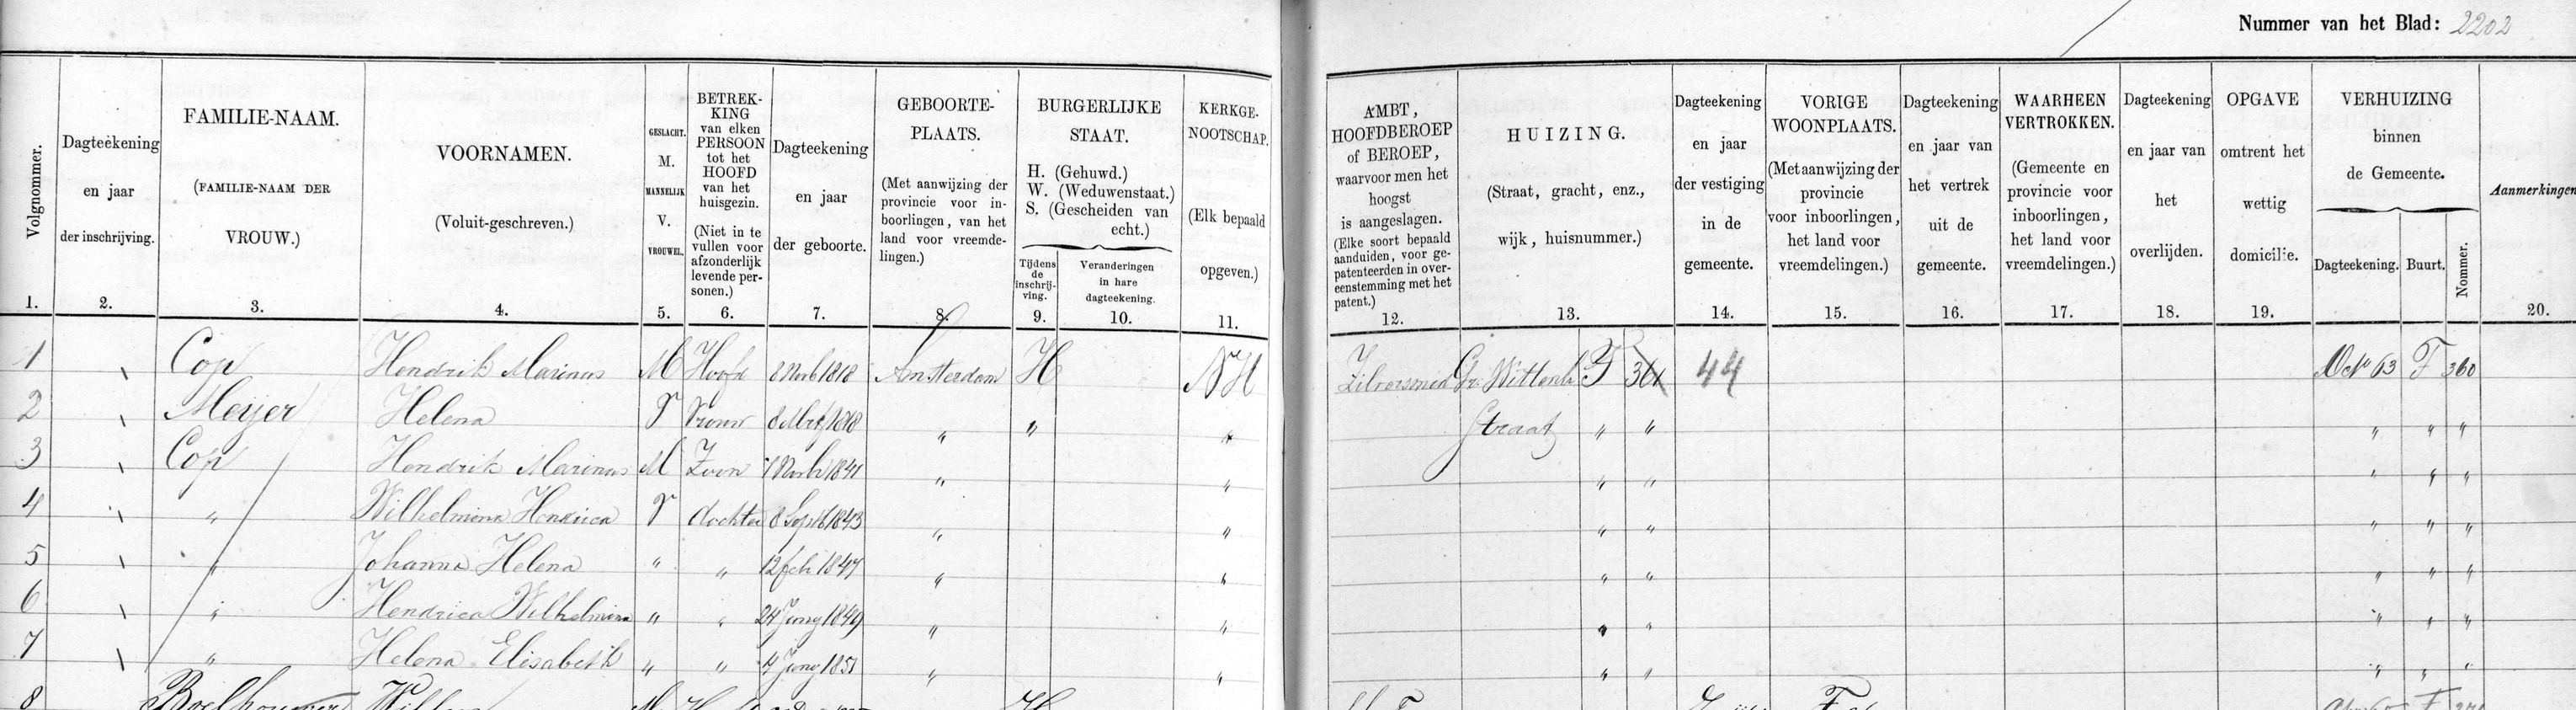 Nummer van het Blad: 2202
Volgnommer.
1.
Dagteekening
en jaar
der inschrijving.
2.
FAMILIE-NAAM.
(FAMILIE-NAAM DER
VROUW.)
3.
VOORNAMEN.
(Voluit-geschreven.)
4.
GESLACHT.
M.
MANNELIJK
V.
VROUWEL.
5.
BETREK-
KING
van elken
PERSOON
tot het
HOOFD
van het
huisgezin.
(Niet in te
vullen voor
afzonderlijk
levende per-
sonen.)
6.
Dagteekening
en jaar
der geboorte.
7.
GEBOORTE-
PLAATS.
(Met aanwijzing der
provincie voor in-
boorlingen, van het
land voor vreemde-
lingen.)
8.
BURGERLIJKE
STAAT.
H. (Gehuwd.)
W. (Weduwenstaat.)
S. (Gescheiden van
echt.)
Tijdens
de
inschrij-
ving.
9.
Veranderingen
in hare
dagteekening.
10.
KERKGE-
NOOTSCHAP.
(Elk bepaald
opgeven.)
11.
AMBT,
HOOFDBEROEP
of BEROEP,
waarvoor men het
hoogst
is aangeslagen.
(Elke soort bepaald
aanduiden, voor ge-
patenteerden in over-
eenstemming met het
patent.)
12.
HUIZING.
(Straat, gracht, enz.,
wijk, huisnummer.)
13.
Dagteekening
en jaar
der vestiging
in de
gemeente.
14.
VORIGE
WOONPLAATS.
(Met aanwijzing der
provincie
voor inboorlingen,
het land voor
vreemdelingen.)
15.
Dagteekening
en jaar van
het vertrek
uit de
gemeente.
16.
WAARHEEN
VERTROKKEN.
(Gemeente en
provincie voor
inboorlingen,
het land voor
vreemdelingen.)
17.
Dagteekening
en jaar van
het
overlijden.
18.
OPGAVE
omtrent het
wettig
domicilie.
19.
VERHUIZING
binnen
de Gemeente.
Dagteekening.
Buurt.
Nommer.
Aanmerkingen
20.
1 Cop Hendrik Marinus M Hoofd 1818 Amsterdam H NH Zilversmid Gr. Wittenb F 361 44 63 F 360
2 Meijer Helena V Vrouw 1818 " " " Straat " " " " "
3 Cop Hendrik Marinus M Zoon 1841 " " " " " " "
4 " Wilhelmina Hendrica V dochter 8 Sept 1843 " " " " " " "
5 " Johanna Helena " " 12 feb 1847 " " " " " " "
6 " Hendrica Wilhelmina " " 24 Juny 1849 " " " " " " "
7 " Helena Elisabeth " " 4 Juny 1851 " " " " " " "
8